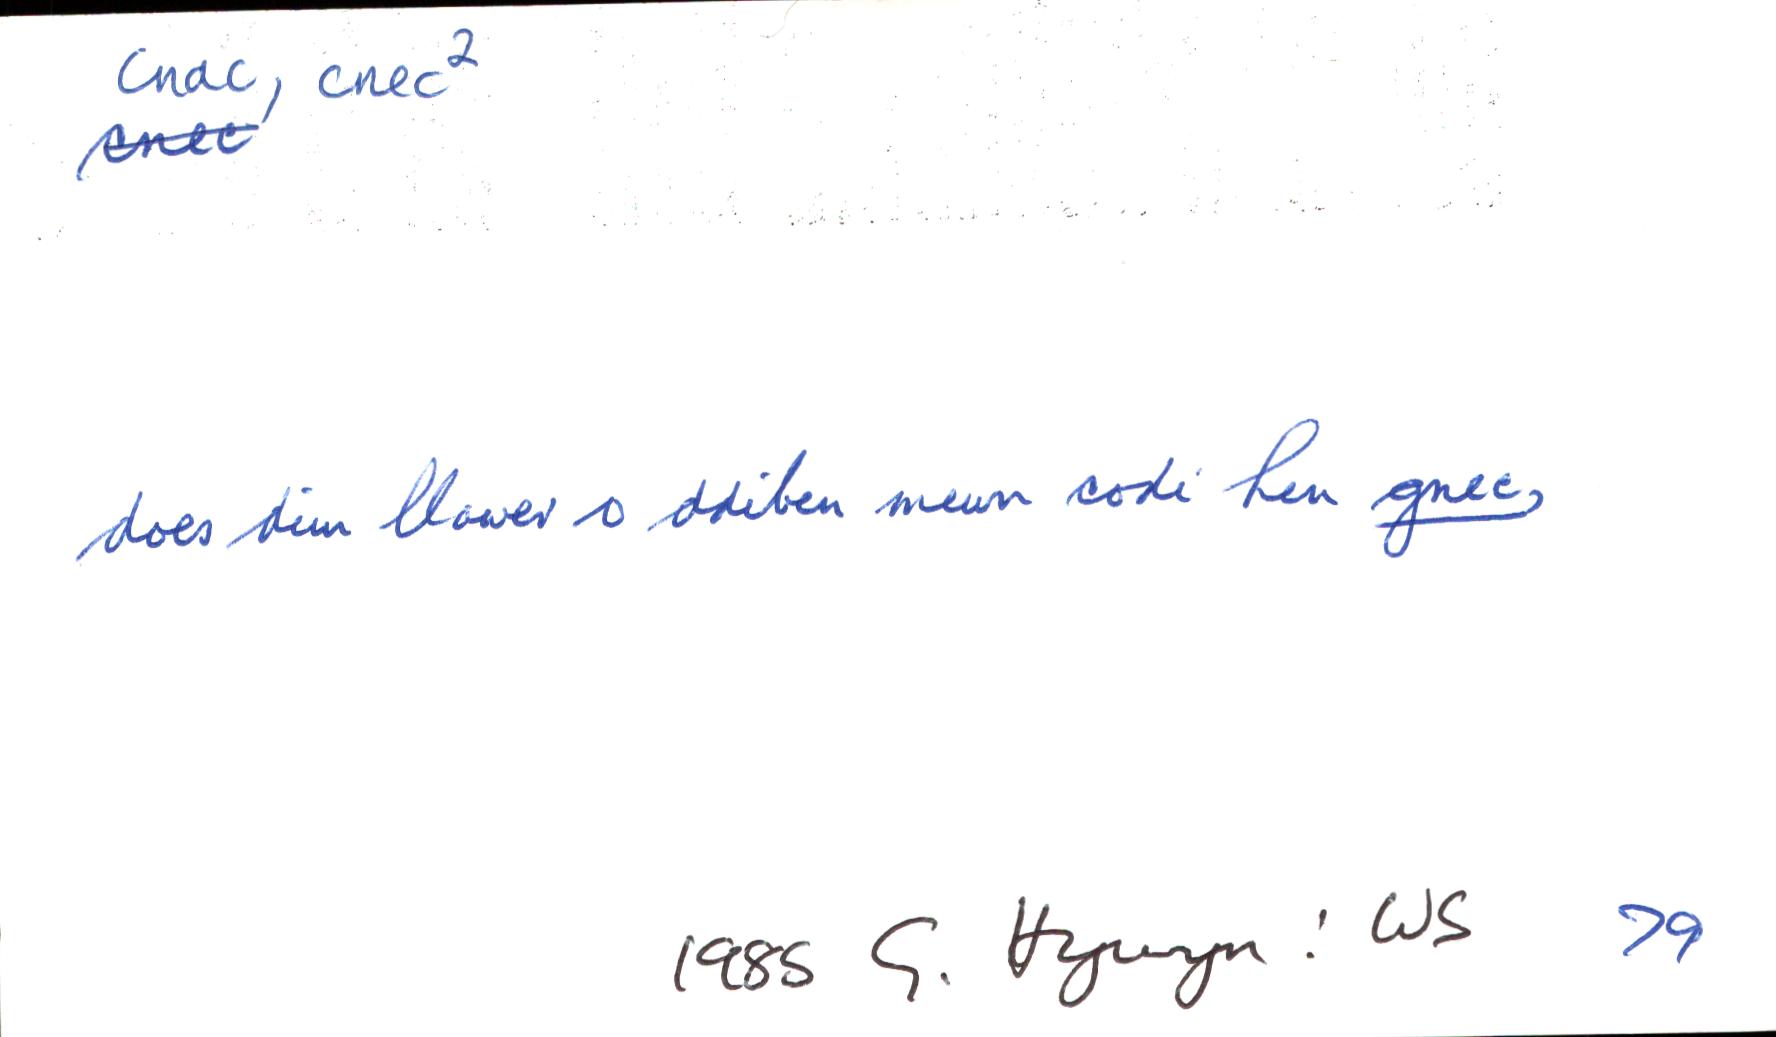 Cnac, cnec²
cnec
does dim llawer o ddiben mewn codi hen gnec,
1985 G. Hywyn: WS 79